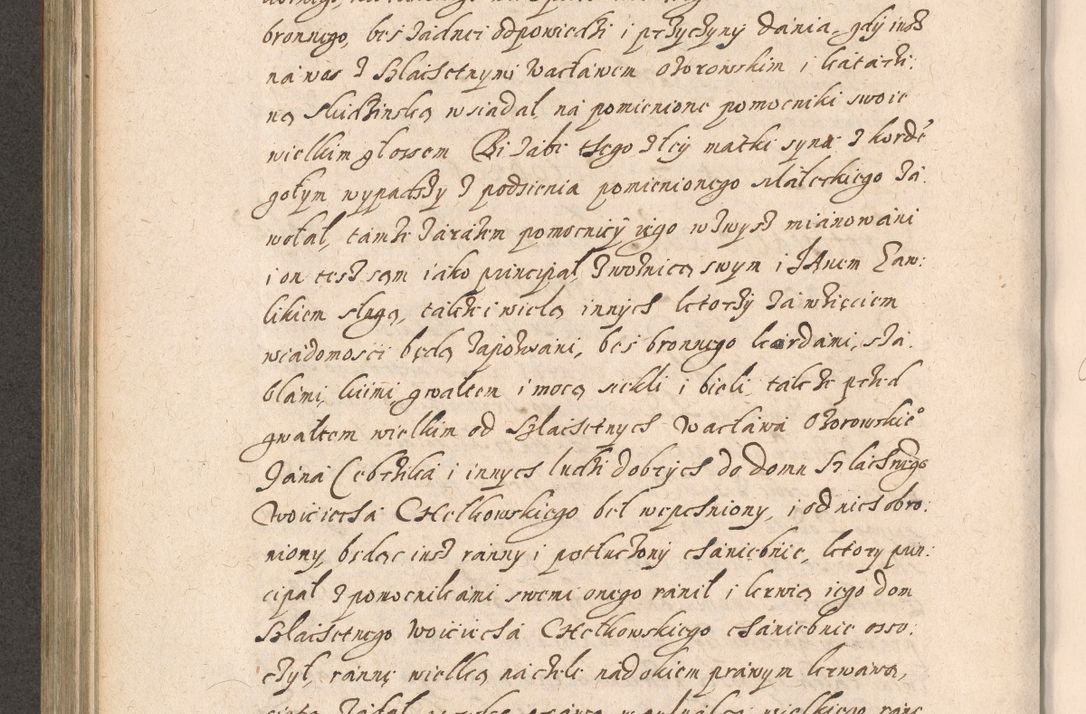 bronnego, bes żadnei odpowiedzi i przyczyny dania, gdy iusz
na wos z Szlaisetnymi Wacławem Ożorowskim i katarzi:
ną Skidzinską wsiadał, na pomienione pomocniki swoie
wielkim głossem Bi zabi tsego złey matki syna z kordē
gołym wypadszy z podsienia pomienionego Małeckiego za:
wołał, tamże zarazem pomocnicÿ iego wzwysz mianowani
i on tesz sam iako principał z wożnicą swym i JAnem Zaw:
likiem sługą, także i wielą innych ktorzy za wzięciem
wiadomosci będą zapozwani, bes bronnego kordami, sza:
blami, kiimi, gwałtem i mocą siekli i bieli, także przed
gwałtem wielkim od Szlaisetnych Wacława Ożorowskie°
Jana Cebrzika i innych ludzi dobrych do domu Szlachnego
Woiciecha CHełkowskiego beł wepchniony, i od nich obro:
niony, będąc iusz ranny i potłuczony chaniebnie, ktory prin:
cipał z pomocnikami swemi onego ranił i krwią iego dom
Szlaisetnego Woiciecha CHełkowskiego chaniebnie oszo:
czył, rannę wielką na czele nad okiem prawym krwawą,